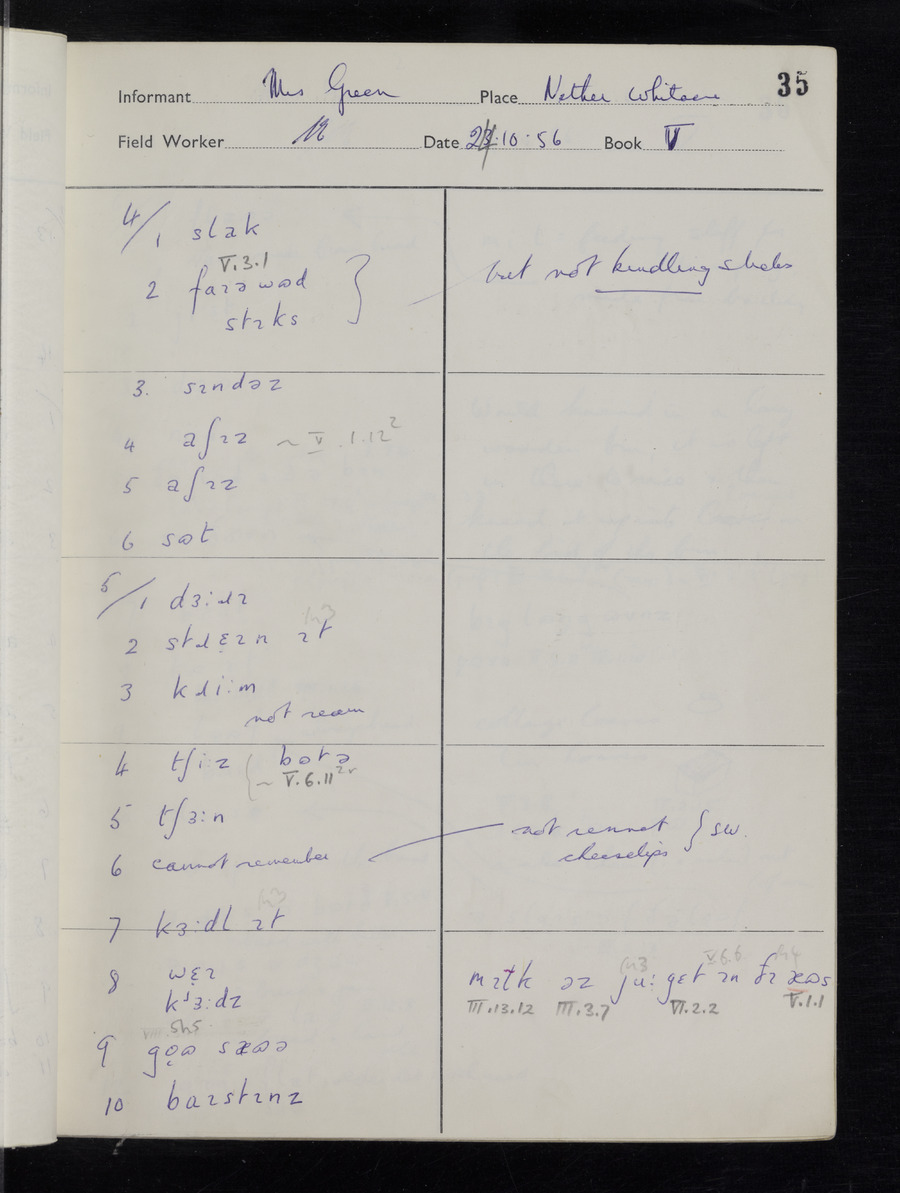 35
Informant Mrs Green Place Nether Whitacre
Field Worker Date 24.10.56 Book V
4/1 slak
V.3.1
2 faɪə wʊd
stɪks
but not kindling sticks
3. sɪndəz
4 aʃɪz ~ V.1.12²
5 aʃɪz
6 sʊt
5/1 dɜ:ɹɪ
2 stɹɛ̣ɪn ɪt
3 kɹi:m
not ream
4 tʃi:z bʊtə
~ V.6.11
5 tʃɜ:n
6 cannot remember
not rennet } sw.
cheeselips
7 kɜ:dl ɪt
8 wɛ̣ɪ
kɜ:dz
mɪlk əz ju: get ɪn ðɪ æʊs
III.13.12 III.3.7 VI.2.2 V.1.1
9 gọʊ sæʊə
10 baɪstɪnz